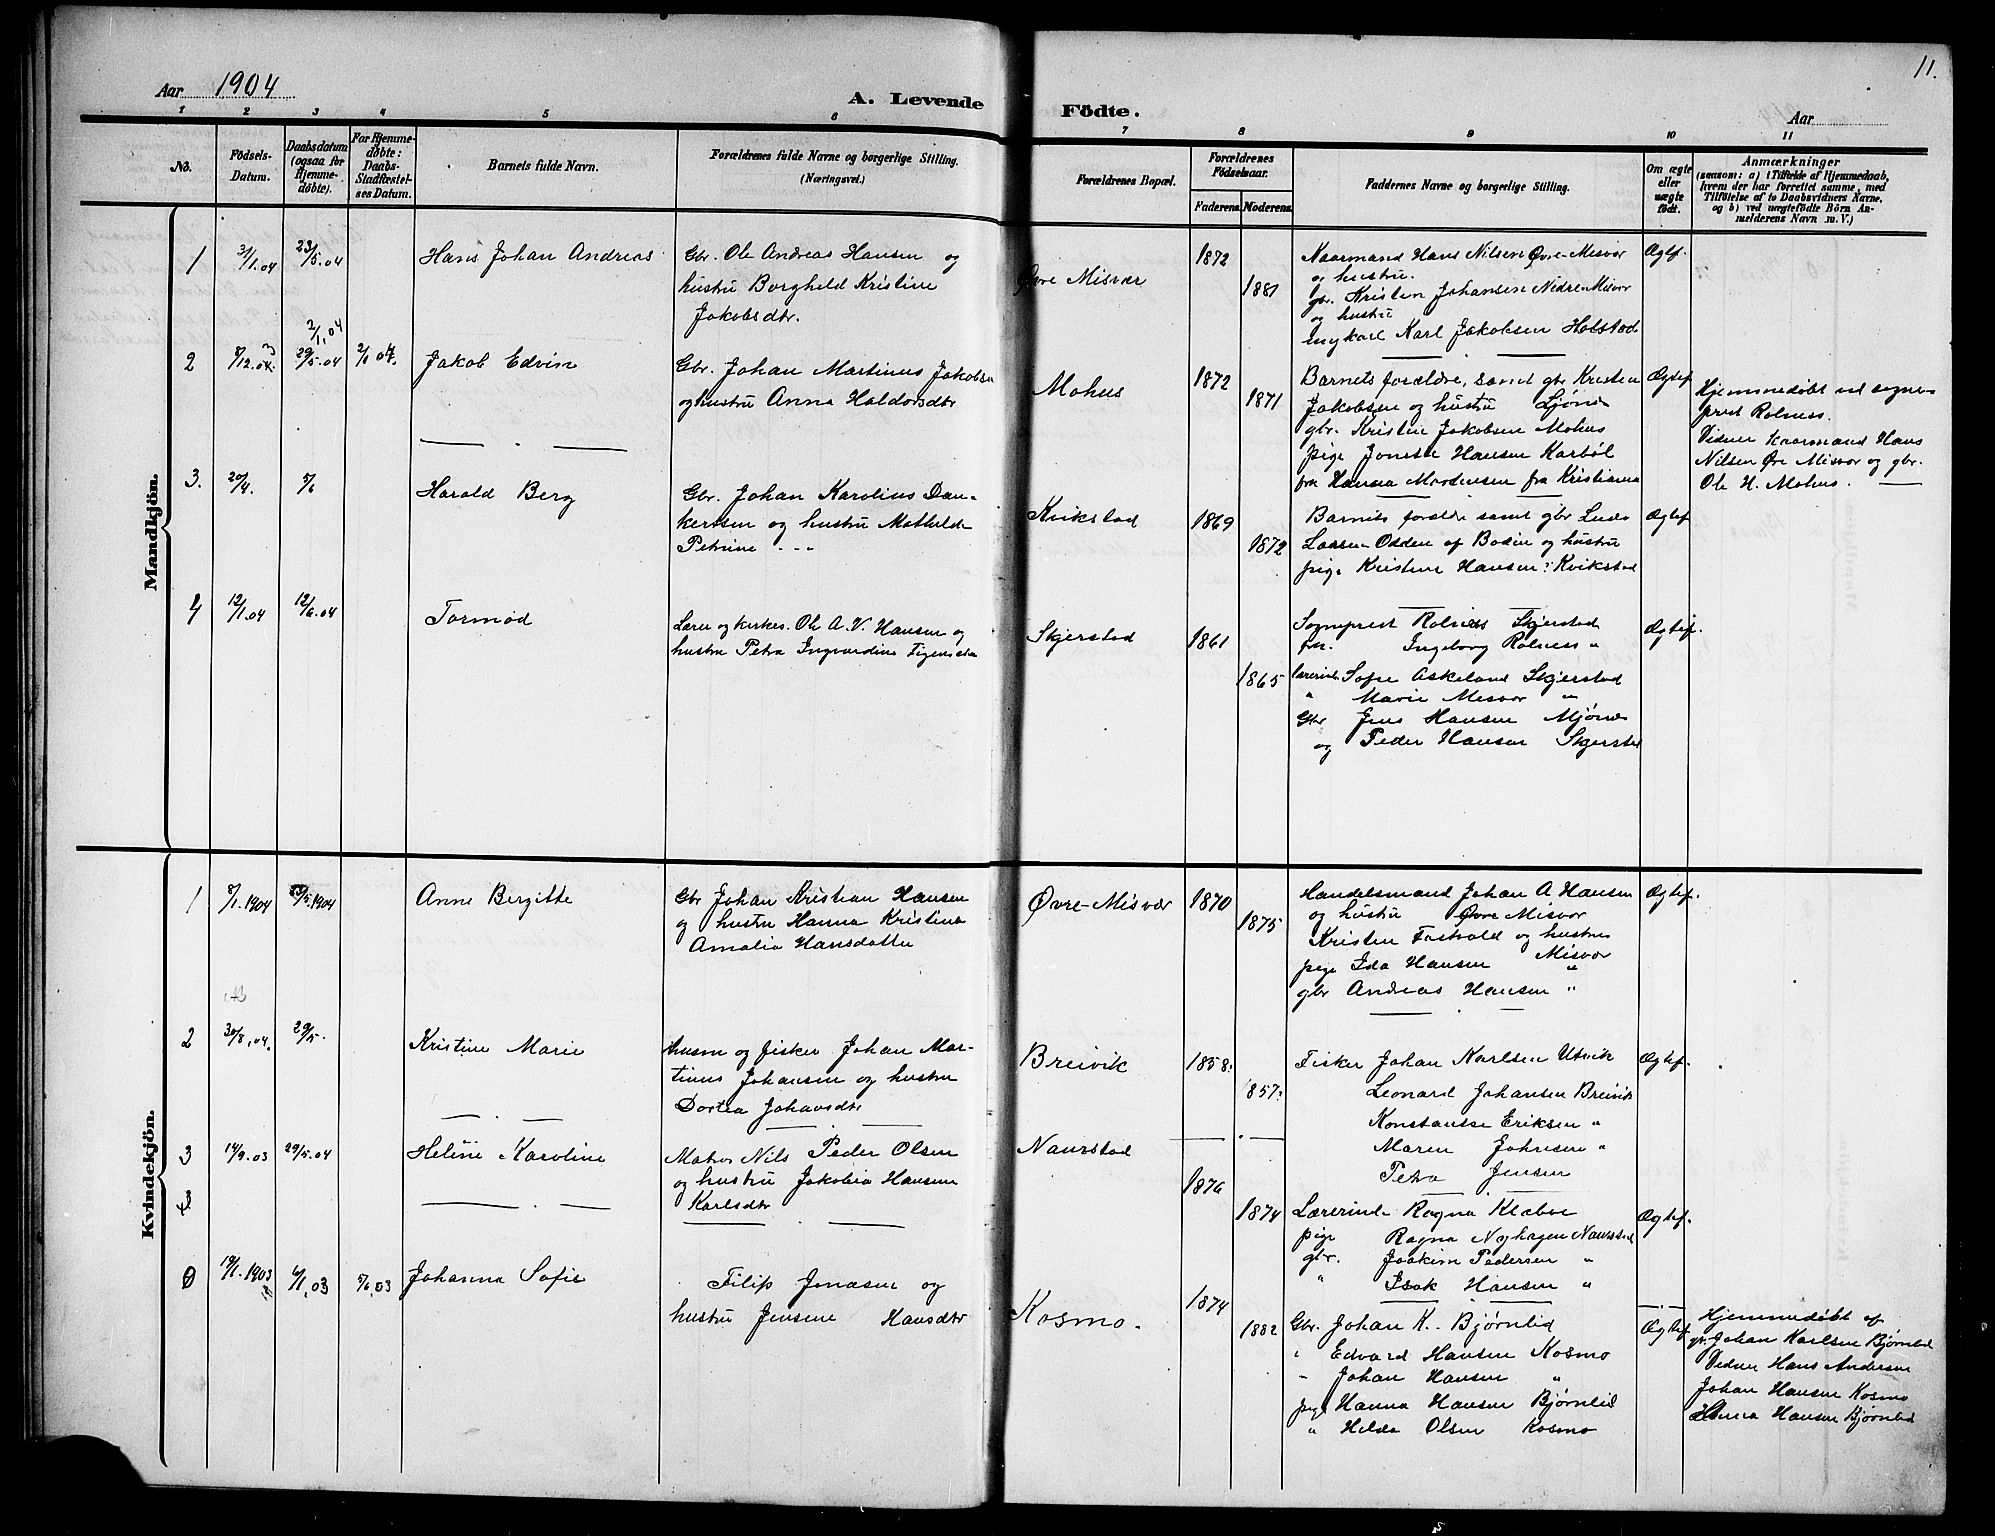 Aar 1904
A. Levende Födte.
Aar
11.
1 2 3 4 5 6 7 8 9 10 11
No.
Födsels-Datum.
Daabsdatum (ogsaa for Hjemme-döbte).
For Hjemme-döbte: Daabs-Stadfæstel-ses Datum.
Barnets fulde Navn.
Forældrenes fulde Navne og borgerlige Stilling. (Næringsvei.)
Forældrenes Bopæl.
Forældrenes Födselsaar.
Faderens. Moderens.
Faddernes Navne og borgerlige Stilling.
Om ægte eller uægte födt.
Anmærkninger
(saasom: a) i Tilfælde af Hjemmedaab,
hvem der har forrettet samme, med
Tilföielse af to Daabsvidners Navne,
og b) ved uægtefödte Börn An-
melderens Navn m. V.)
Mandkjön.
1 3/1.04 23/5.04 Hans Johan Andreas
Gbr. Ole Andreas Hansen og
hustru Borghild Kristine
Jakobsdtr.
Øvre Misvær
1872
1881
Kaarmand Hans Nilsen Øvre-Misvær
og hustru.
gbr. Kristen Johansen Nedre-Misvær
og hustru
ungkarl Karl Jakobsen Holstad
Ægtef.
2/1.04
2 8/12.03 29/5.04 2/1 04. Jakob Edvin
Gbr. Johan Martinus Jakobsen
og hustru Anna Haldorsdtr
Mohus
1872
1871
Barnets forældre, samt gbr Kristen
Jakobsen og hustru Ljønes
gbr. Kristen Jakobsen Mohus
pige Jonette Hansen Karbøl
frk Hanna Mortensen fra Kristiania
Ægtef
Hjemmedøbt ved sogne-
prest Rolness.
Vidner Kaarmand Hans
Nilsen Øvre Misvær og gbr.
Ole H. Mohus.
3. 20/4. 5/6 Harald Berg
Gbr. Johan Karolius Dan-
kertsen og hustru Mathilde
Petrine
Kvikstad
1869
1872
Barnets forældre samt gbr Ludv
Larsen Odden af Bodin og hustru
pige Kristine Hansen Kvikstad
Ægtef
4 12/1.04 12/6.04 Tormod
Lærer og kirkes. Ole A. V. Hansen og
hustru Petra Ingvardine
Skjerstad
1861
1865
Sogneprest Rolness Skjerstad
fru. Ingeborg Rolness "
lærerinde Sofie Askeland Skjerstad
" Marie Misvær "
Gbr Jens Hansen Mjønes
og Peder Hansen Skjerstad
Ægtef.
Kvindekjön.
1 8/1.1904 23/5.1904 Anne Bergitte
Gbr Johan Kristian Hansen
og hustru Hanna Kristina
Amalia Hansdatter
Øvre-Misvær
1870
1875
Handelsmand Johan A Hansen
og hustru Øvre Misvær
Kristen Foshold og hustru
Misvær
pige Ida Hansen "
gbr Andreas Hansen "
Ægtef.
2 30/8.04. 29/5. Kristine Marie
Husm og fisker Johan Mar-
tinus Johansen og hustru
Dortea Johansdtr
Breivik
1858.
1857.
Fisker Johan Karlsen Utvik
Leonard Johansen Breivik
Konstanse Eriksen "
Maren Johnsen "
Petra Jensen
Ægtef.
3 14/9.03 29/5.04 Heline Karoline
Matros Nils Peder Olsen
og hustru Jakobia Hansine
Karlsdtr
Naurstad
1876
1874
Lærerinde Ragna Klæboe
pige Ragna Nyhagen Naurstad
gbr. Joakim Pedersen "
" Isak Hansen "
Ægtef.
4
19/1.1903 6/1.03 5/6.03 Johanna Sofie
Filip Jonasen og
hustru Jensine Hansdtr
Kosmo.
1874
1882
Gbr. Johan K. Bjørnlid
" Edvard Hansen Kosmo
" Johan Hansen "
pige Hanna Hansen Bjørnlid
" Hilda Olsen Kosmo
Ægtef.
Hjemmedøbt af
gbr. Johan Karlsen Bjørnlid
Vidner Hans Andersen
Johan Hansen Kosmo
Hanna Hansen Bjørnlid